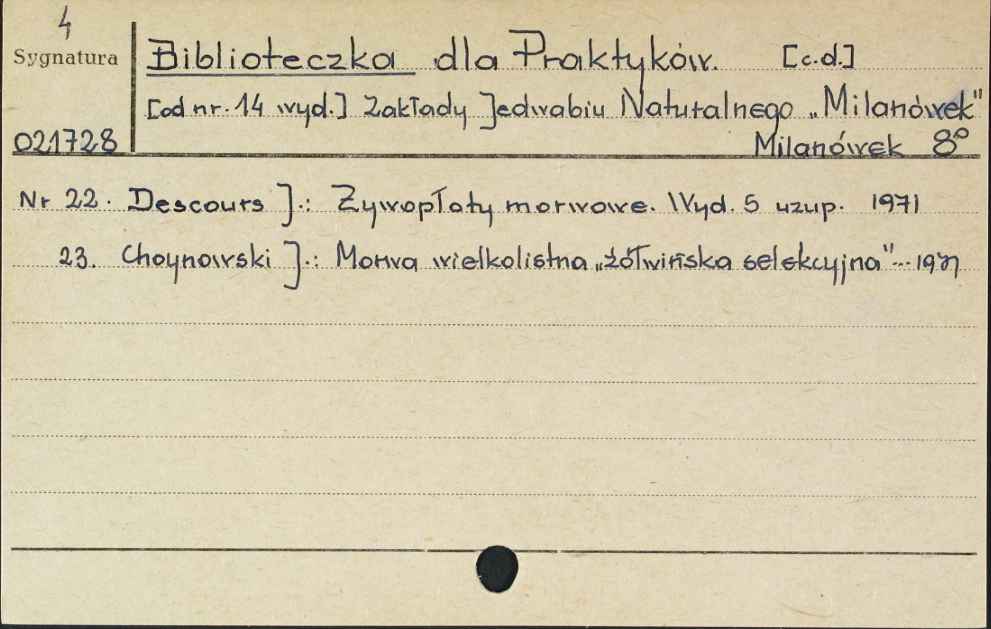 4
Sygnatura
Biblioteczka dla Praktyków. [c.d.]
[od nr. 14 wyd.] Zakłady Jedwabiu Naturalnego „Milanówek"
021728
Milanówek 8°
Nr 22. Descours J.: Żywopłoty morwowe. Wyd. 5 uzup. 1971
23. Choynowski J.: Morwa wielkolistna „żółwińska selekcyjna"... 1971